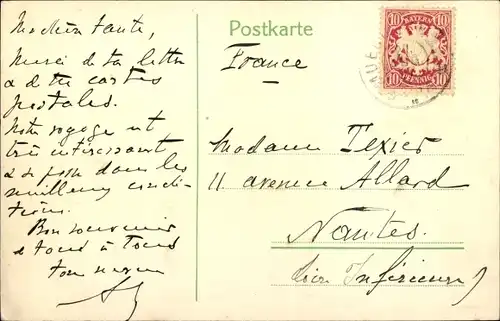 Ma chère tante,
Merci de ta lettre
& de tes cartes
postales.
Notre voyage est
très intéressant
& se passe dans les
meilleures condi-
tions.
Bon souvenir
à tous & à tous
ton neveu
Postkarte
France
BAYERN
10 10
10 PFENNIG 10
Madame Texier
11 avenue Allard
Nantes.
(Loire Inférieure)